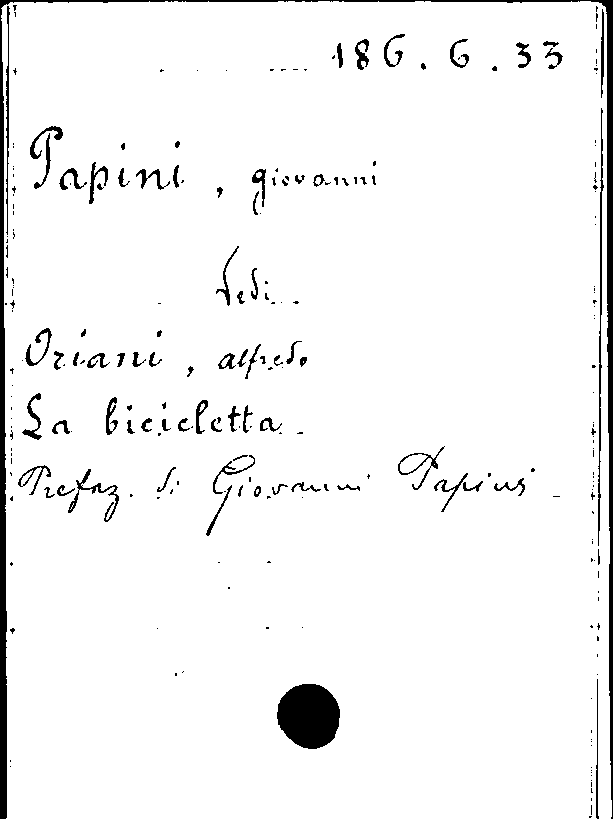 186.6.33
Papini, giovanni
Vedi
Oriani, alfredo
La bicicletta
Prefaz. di Giovanni Papini